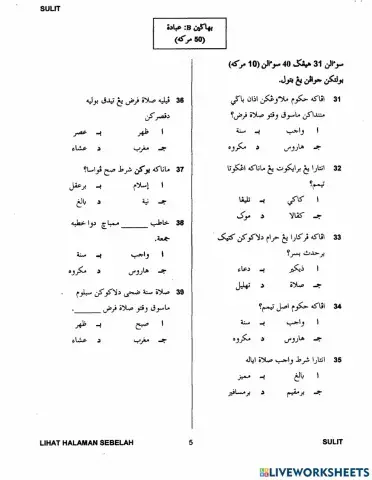 SULIT
بهاگين B: عبادة
(50 مركه)
سوءالن 31 هيڠݢ 40 سوءالن (10 مركه)
بولتكن جواڤن يڠ بتول.
31 اڤاكه حكوم ملاوڠكن اذان باݢي
مننداكن ماسوق وقتو صلاة فرض؟
ا واجب ب سنة
ج هاروس د مكروه
32 انتارا يڠ برايكوت يڠ ماناكه اڠݢوتا
تيمم؟
ا كاكي ب تليڠا
ج كڤالا د موك
33 اڤاكه ڤركارا يڠ حرام دلاكوكن كتيك
برحدث بسر؟
ا ذيكير ب دعاء
ج صلاة د تهليل
34 اڤاكه حكوم اصل تيمم؟
ا واجب ب سنة
ج هاروس د مكروه
35 انتارا شرط واجب صلاة اياله
ا بالغ ب مميز
ج برمقيم د برمسافير
36 ڤيليه صلاة فرض يڠ تيدق بوليه
دقصركن
ا ظهر ب عصر
ج مغرب د عشاء
37 ماناكه بوكن شرط صح ڤواسا؟
ا إسلام ب برعقل
ج نية د بالغ
38 خاطب ______ ممباچ دوا خطبه
جمعة.
ا واجب ب سنة
ج هاروس د مكروه
39 صلاة سنة ضحى دلاكوكن سبلوم
ماسوق وقتو صلاة فرض ______.
ا صبح ب ظهر
ج مغرب د عشاء
LIHAT HALAMAN SEBELAH 5 SULIT
LIVEWORKSHEETS